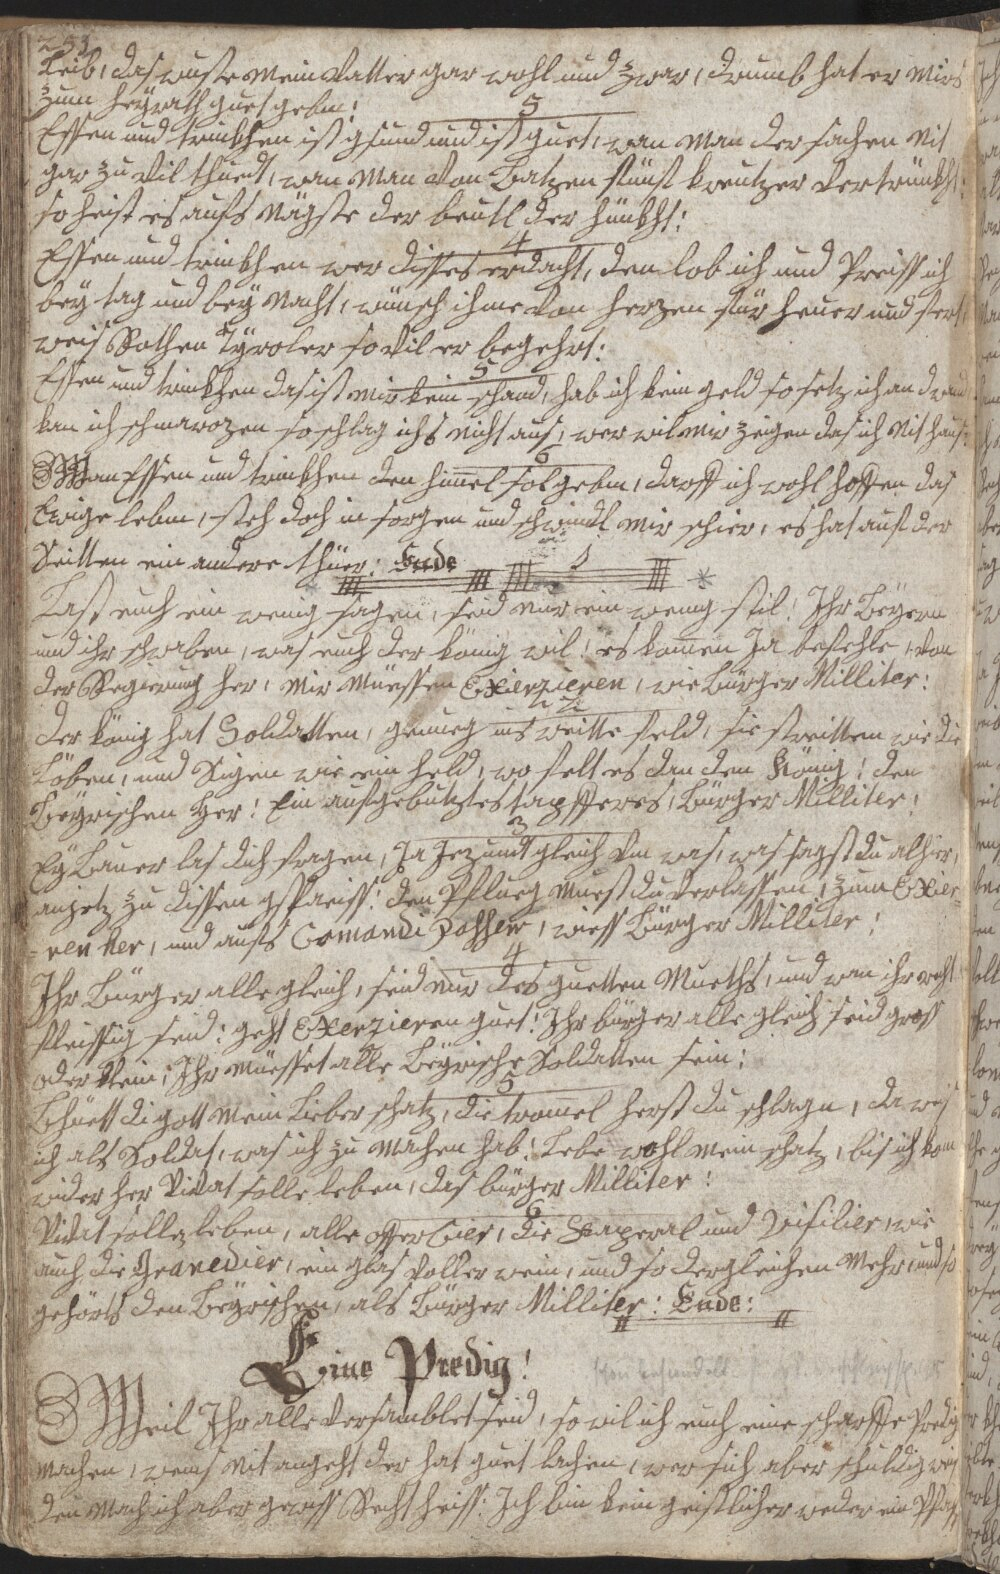 253
Leib, das wuste Mein Vatter gar wohl und zwar, drumb hat er Mirs
zum heÿrath guet gebm:
3
Essen und trinkhen ist gsund und ist guet, wan Man der sachen Nit
gar zu Vil thuet, wan Man Von Batzen fünf kreutzer Vertrünkht:
so heist es aufs Nägste der beutl der hünkht:
4
Essen und trinkhen wer disses erdacht, den lob ich und Preiss ich
beÿ tag und beÿ Nacht, wünsch ihme Von herzen für heuer und fert,
weis Rothen Tÿroler so Vil er begehrt:
5
Essen und trinkhen das ist mir kein schand, hab ich kein geld so setz ich an
kan ich schmarozen so schlag ichs Nicht aus, wer wil Mir zeigen das ich Nit haus:
6
Wan Essen und trinkhen den himel sol gebm, darff ich wohl hoffen das
Ewige lebm, steh doch in sorgen und schwindl Mir schier, es hat auf der
Seitten ein andere thüer: Ende
1
Last euch ein wenig sagen, seid Nur ein wenig stil! Ihr Beÿern
und ihr schwaben, was euch der König wil! es komen Ja befehle, Von
der Regierung her, Mir Müessen Exerzieren, wie Bürger Milliter:
2
der König hat Soldatten, genueg ins weitte feld, sie streitten wie die
Löben, und Sigen wie ein held, wo felt es dan den König! den
Beÿrischen Her! Ein aufgebutztes tapfferes, Bürger Milliter!
3
Eÿ Bauer las dich fragen, Ja Jezundt gleich Um was, was sagst du alhier,
anjetz zu dissen gspaiss! den Pflueg Muest du Verlassen, zum Exier=
=ren her, und aufs Comandi, wiess Bürger Milliter!
4
Ihr Bürger alle gleich, seid nur des guetten Mueths, und wan ihr recht
fleissig seid: geht Exerzieren guet! Ihr bürger alle gleich seid gross
oder klein, Ihr Müesset alle Beÿrische Soldatten sein:
5
Bhüett di gott Mein Lieber schatz, die tromel herst du schlagn, da weis
ich als Soldat, was ich zu Machen hab! Lebe wohl Mein schatz, bis ich kom
wider her Vivat solle leben, das bürger Milliter!
6
Vivat solle leben, alle, die und, wie
auch die Granedier, ein glas Voller wein, und so dergleichen Mehr, und so
gehörts den Beÿrischen, als Bürger Milliter: Ende:
Eine Predig!
Weil Ihr alle Versamblet seid, so wil ich euch eine scharffe Predig
Machen, wems Nit angeht der hat guet lachen, wer sich aber schuldig weis
den Mach ich aber gewiss Recht heiss: Ich bin kein geistlicher weder ein